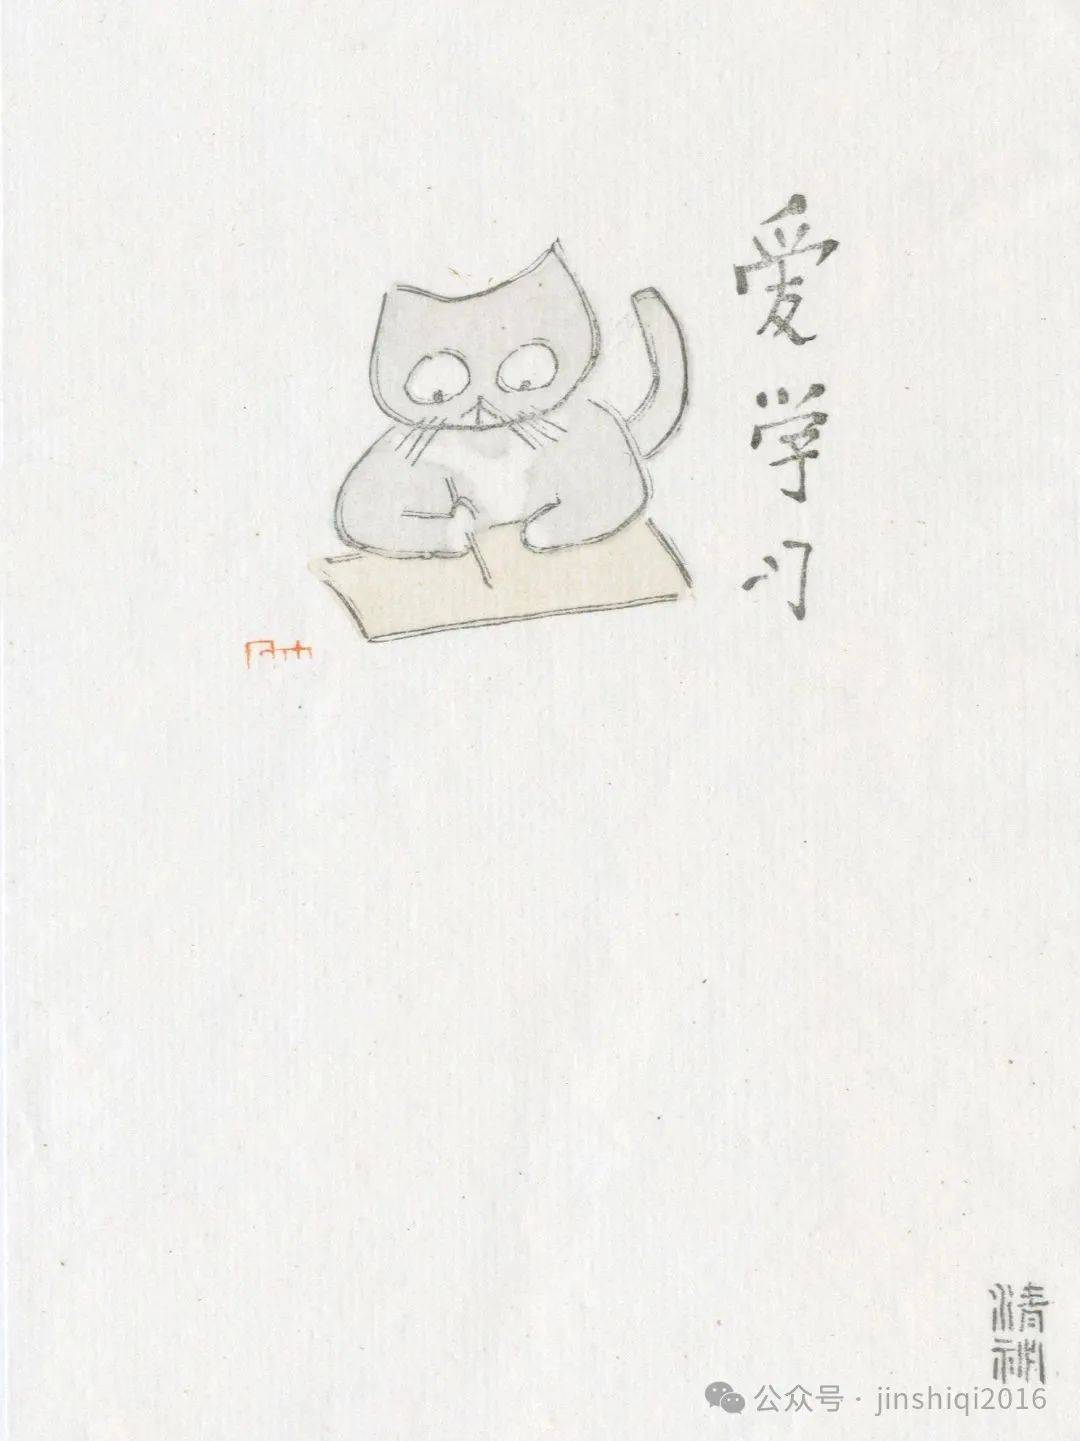 爱学习
公众号 · jinshiqi2016